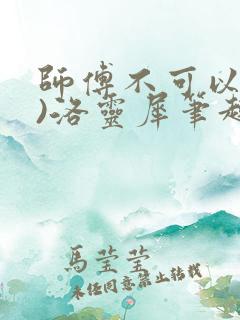 師傅不可以
)洛靈犀筆趣
馬瑩瑩
未經同意禁止轉載